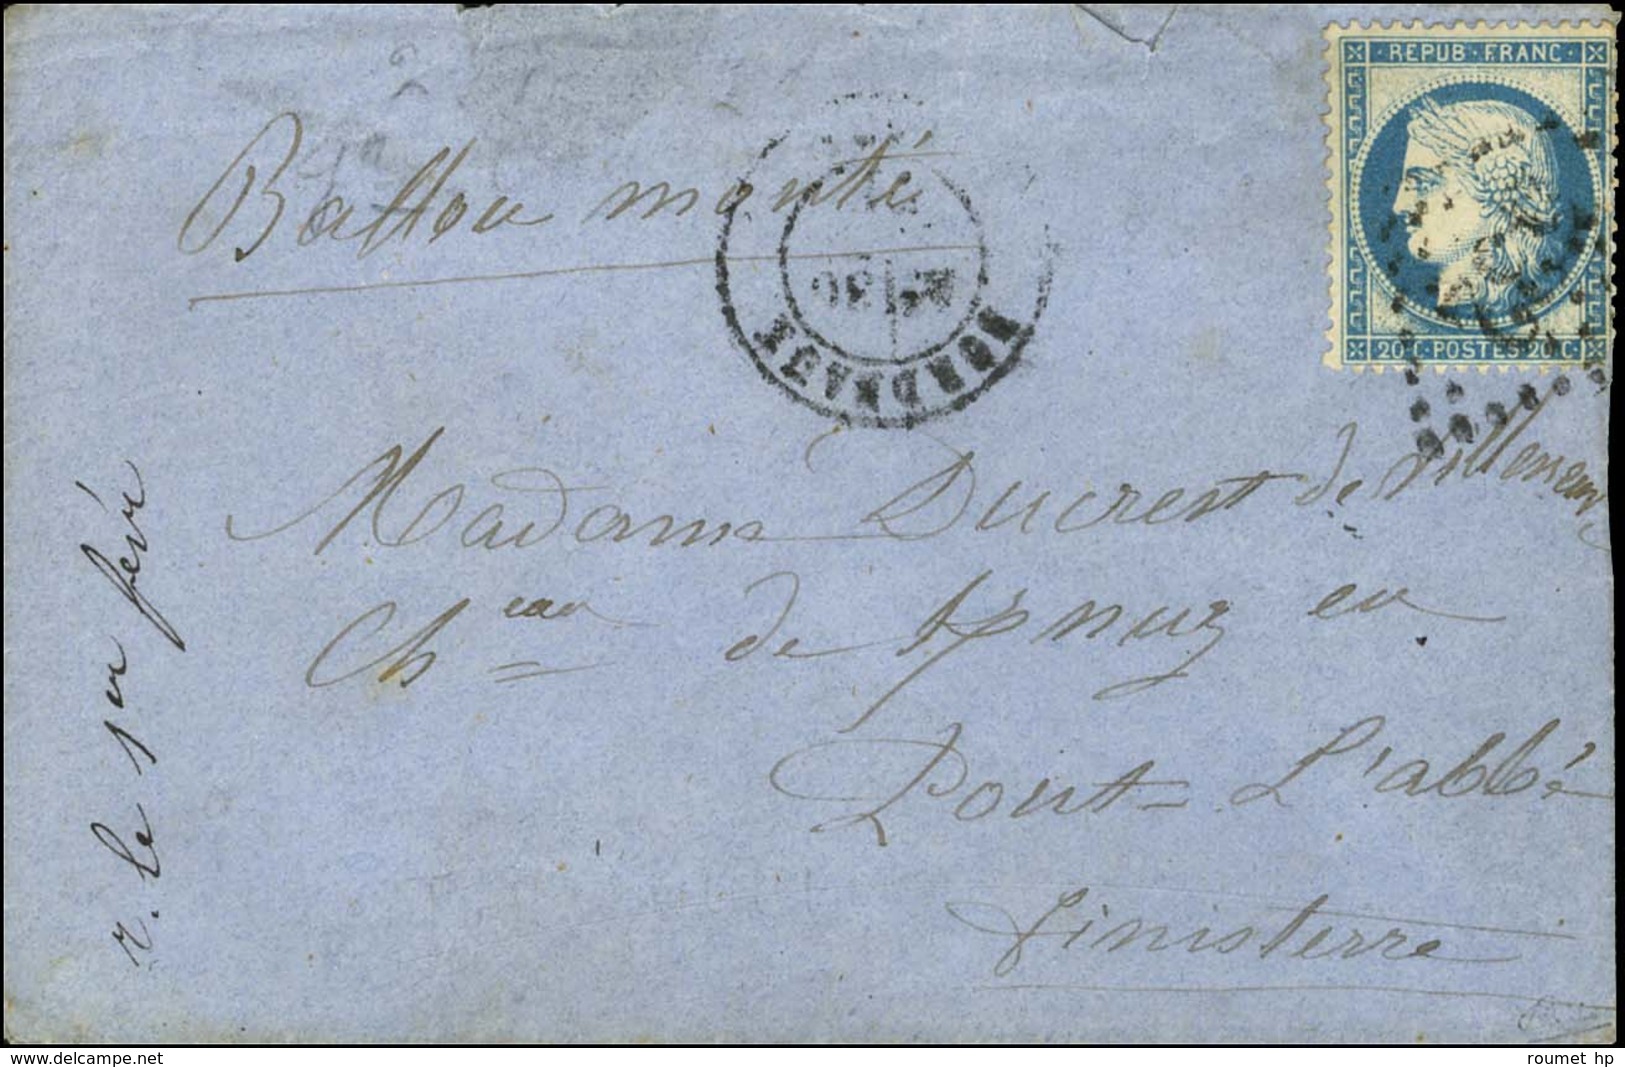 REPUB · FRANC ·
20 C · POSTES · 20 C ·
Ballon monté
BORDEAUX
Madame Ducrest de Villeneuve
Ch eau de en
Pont-L'abbé
Finisterre
r. le 1er fevr
www.delcampe.net
roumet hp